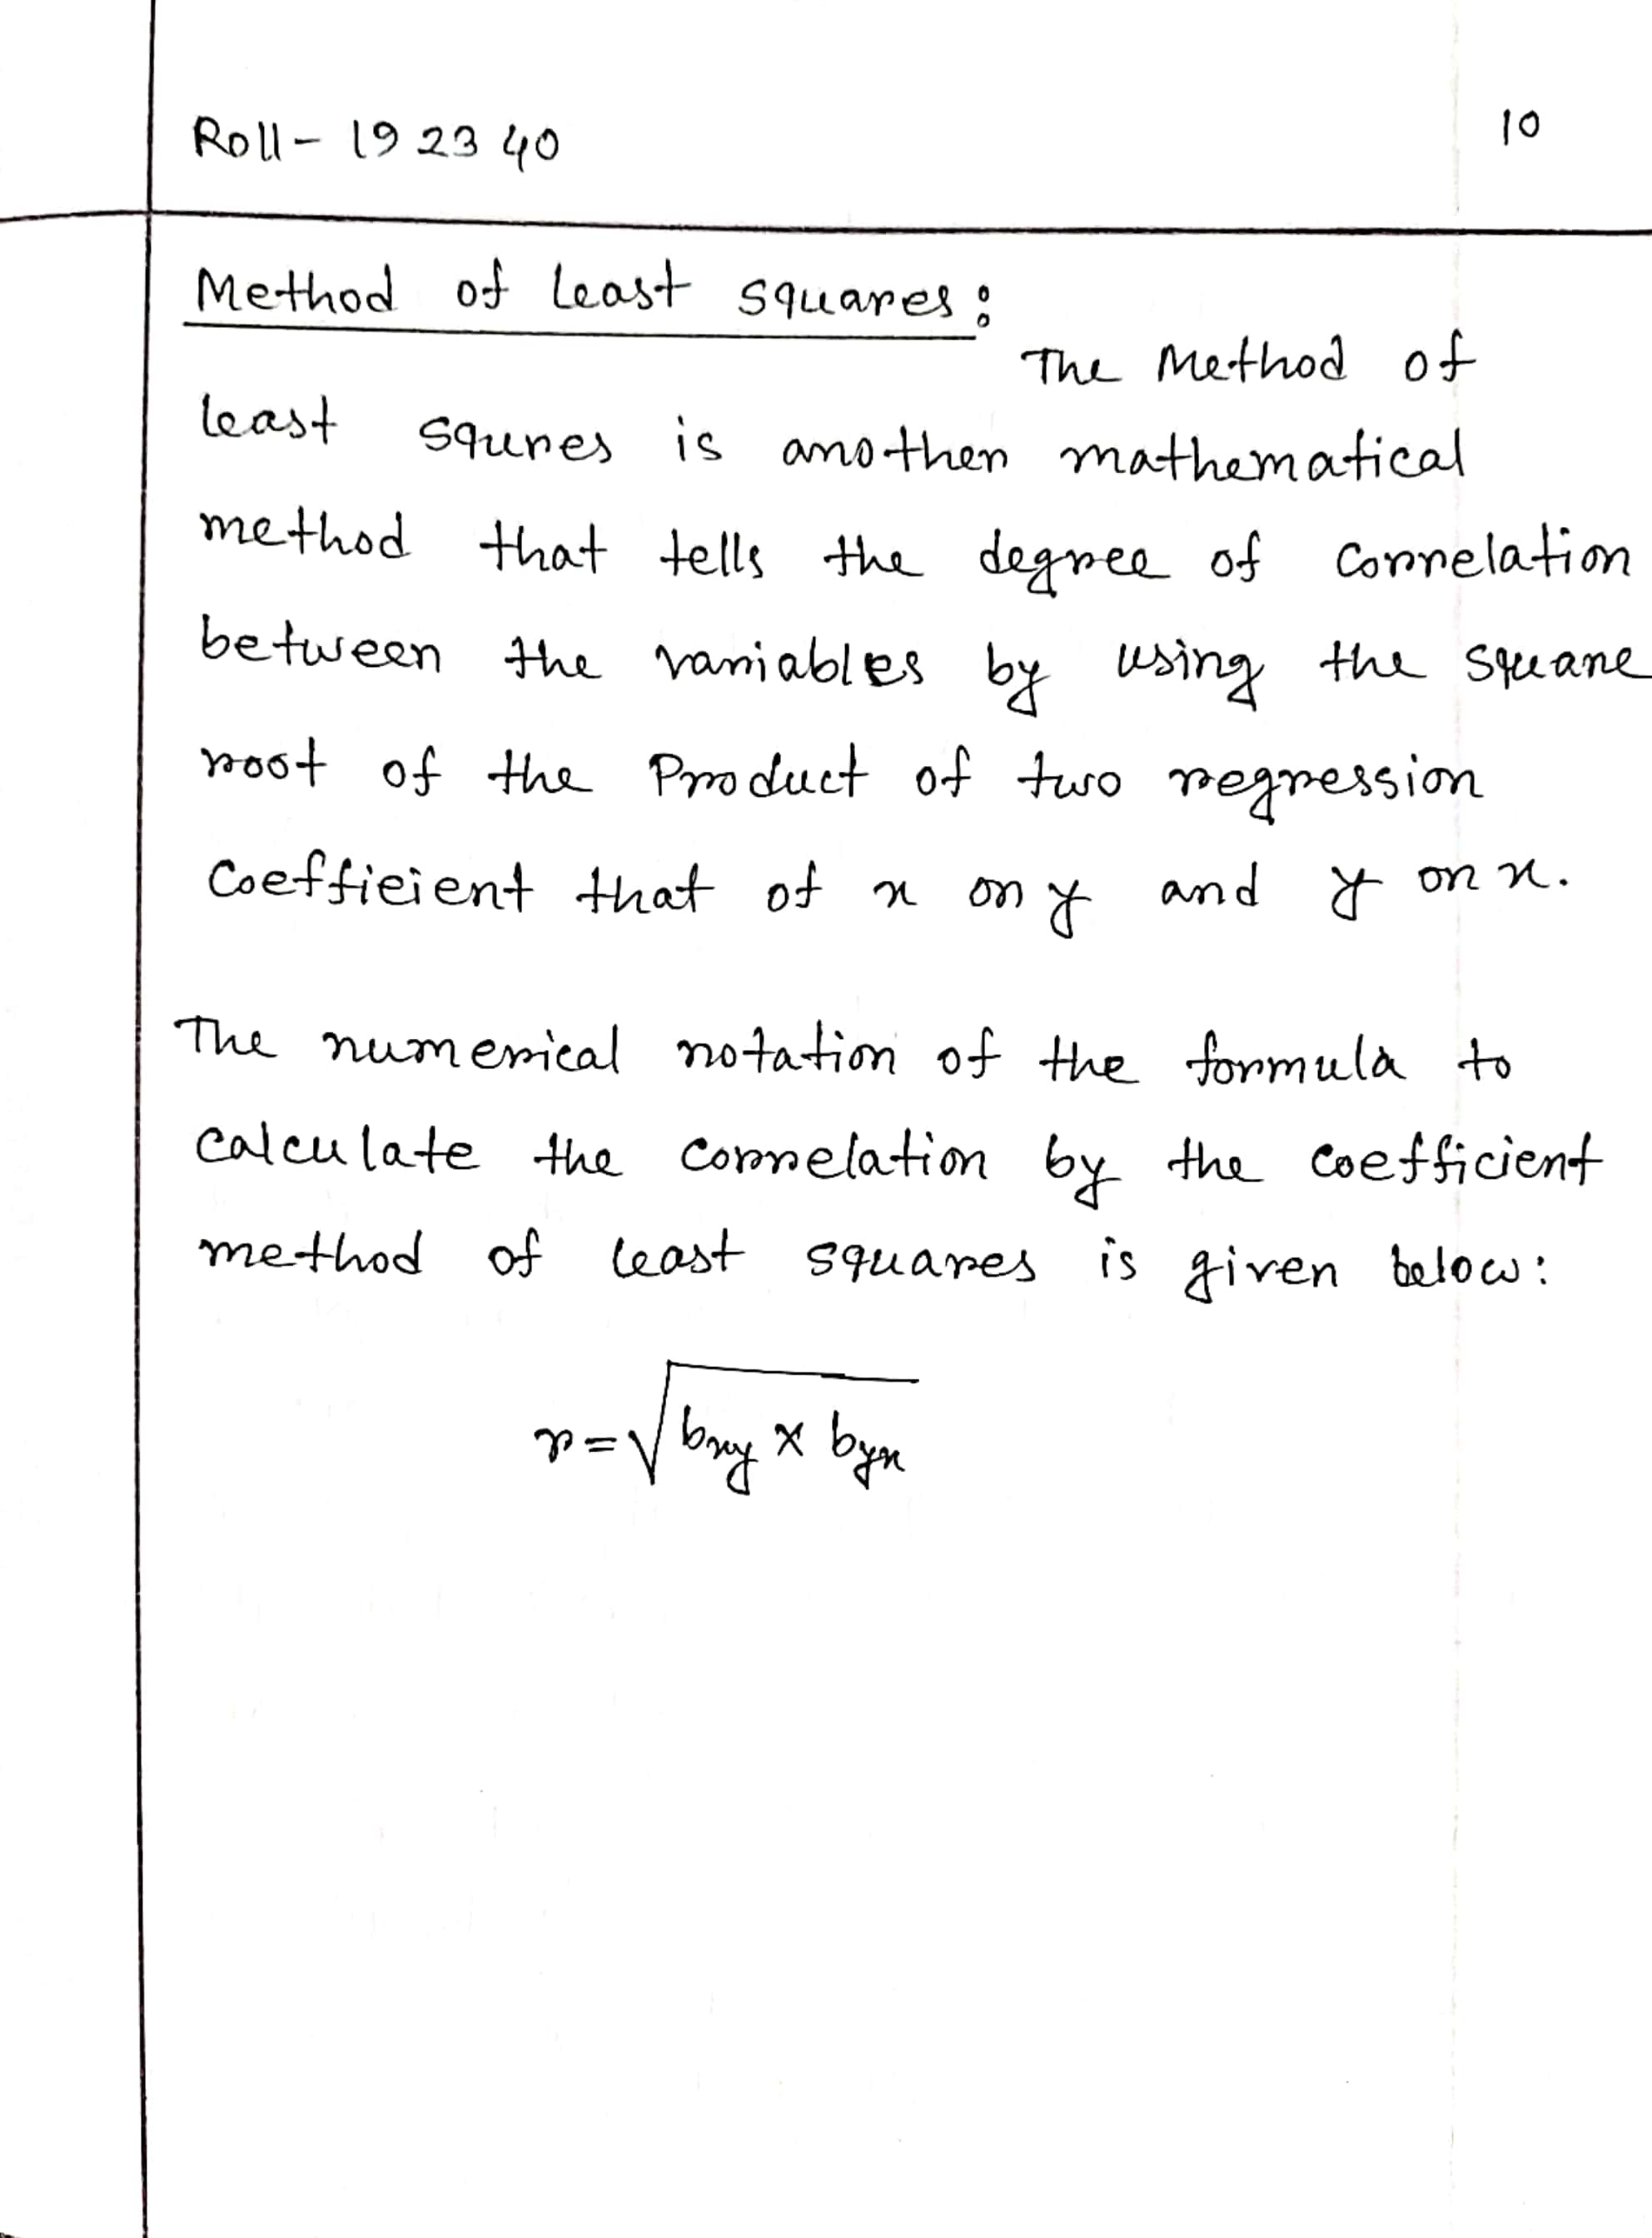 Roll - 192340
10
Method of least squares:
The Method of
least squres is another mathematical
method that tells the degree of correlation
between the variables by using the square
root of the Product of two regression
Coefficient that of x on y and y on x.
The numerical notation of the formula to
calculate the correlation by the coefficient
method of least squares is given below:
r = √(bxy × byx)